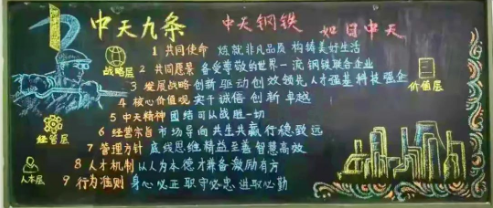 中天九条
中天钢铁 如日中天
战略层
价值层
经营层
人本层
1 共同使命 炼就非凡品质 构铸美好生活
2 共同愿景 备受尊敬的世界一流钢铁联合企业
3 发展战略 创新驱动 创效领先 人才强基 科技强企
4 核心价值观 实干 诚信 创新 卓越
5 中天精神 团结可以战胜一切
6 经营宗旨 市场导向 共生共赢 行德致远
7 管理方针 底线思维 精益至善 智慧高效
8 人才机制 以人为本 德才兼备 激励有方
9 行为准则 身心必正 职守必忠 进取必勤